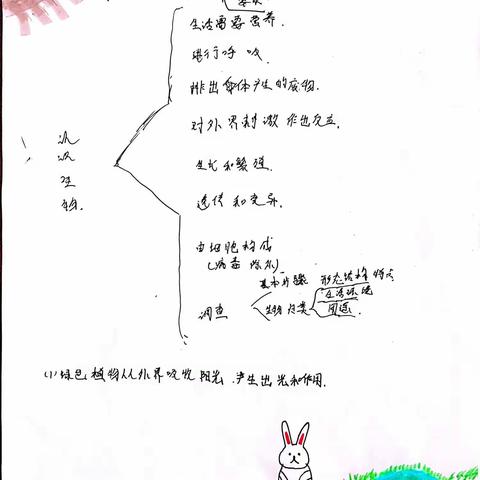 生活需要营养.
进行呼吸.
排出身体产生的废物.
对外界刺激作出反应.
生长和繁殖.
遗传和变异.
由细胞构成
(病毒除外)
认
识
生
物.
调查
基本步骤
生物分类
形态结构特点
生活环境
用途.
(1)绿色植物从外界吸收阳光.产生出光和作用.